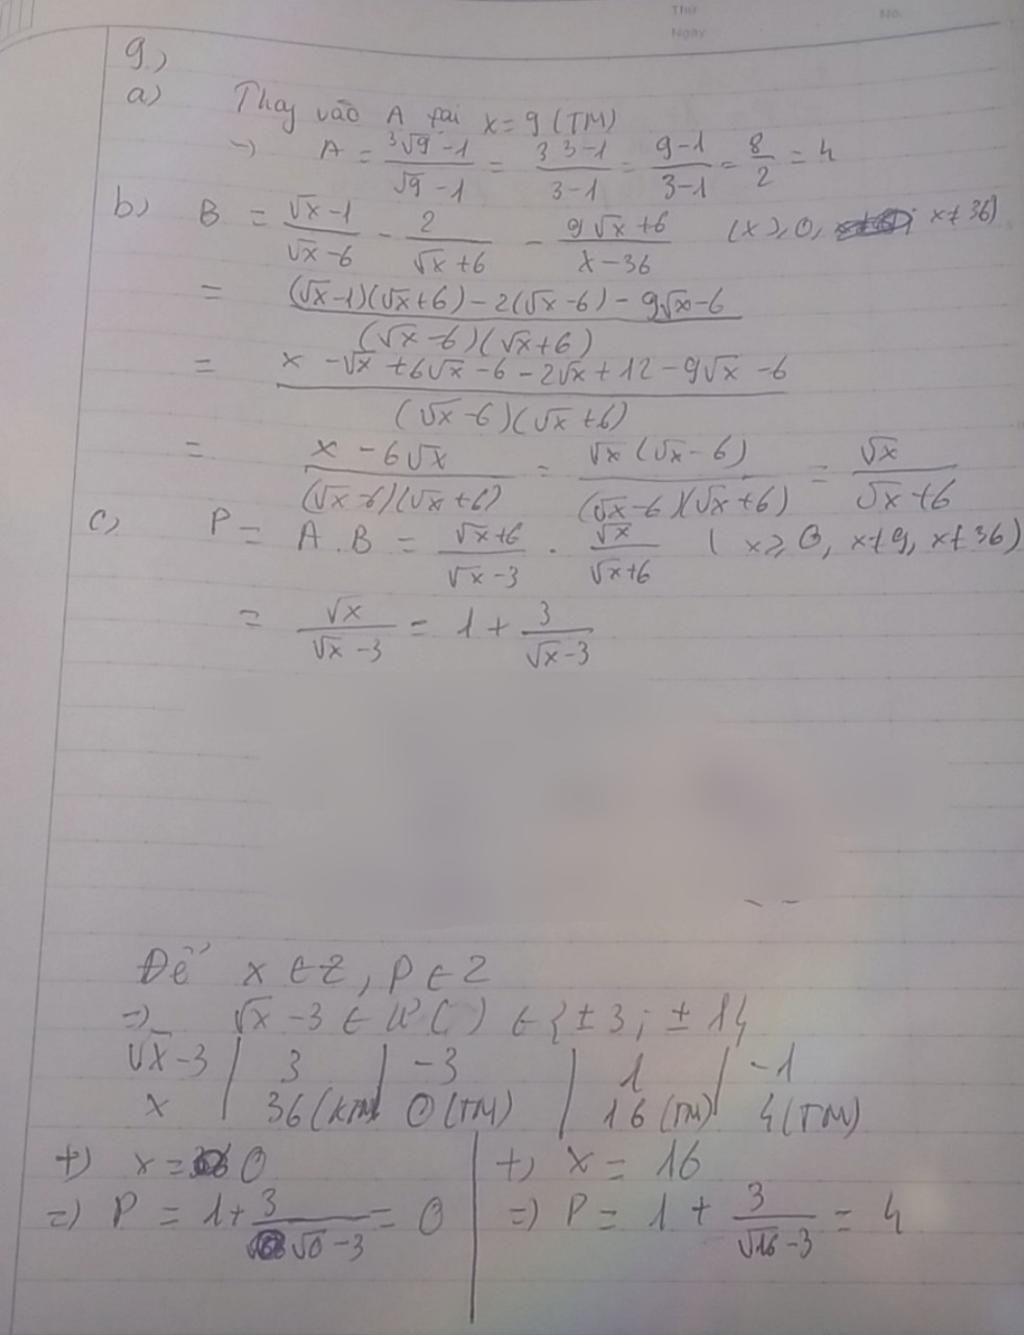 Thứ
No.
Ngày
9.)
a) Thay vào A tại x = 9 (TM)
→ A = (3√9 - 1)/(√9 - 1) = (3 3 - 1)/(3 - 1) = (9 - 1)/(3 - 1) = 8/2 = 4
b) B = (√x - 1)/(√x - 6) - 2/(√x + 6) - (9√x + 6)/(x - 36) (x ≥ 0, x ≠ 36)
= ((√x - 1)(√x + 6) - 2(√x - 6) - 9√x - 6)/((√x - 6)(√x + 6))
= (x - √x + 6√x - 6 - 2√x + 12 - 9√x - 6)/((√x - 6)(√x + 6))
= (x - 6√x)/((√x - 6)(√x + 6)) = (√x(√x - 6))/((√x - 6)(√x + 6)) = √x/(√x + 6)
c) P = A.B = (√x + 6)/(√x - 3) . √x/(√x + 6) (x ≥ 0, x ≠ 9, x ≠ 36)
= √x/(√x - 3) = 1 + 3/(√x - 3)
Để x ∈ Z, P ∈ Z
=> √x - 3 ∈ Ư( ) ∈ {±3; ±1}
√x - 3 | 3 | -3 | 1 | -1
x | 36 (KTM) | 0 (TM) | 16 (TM) | 4 (TM)
+) x = 0 | +) x = 16
=> P = 1 + 3/(√0 - 3) = 0 | => P = 1 + 3/(√16 - 3) = 4